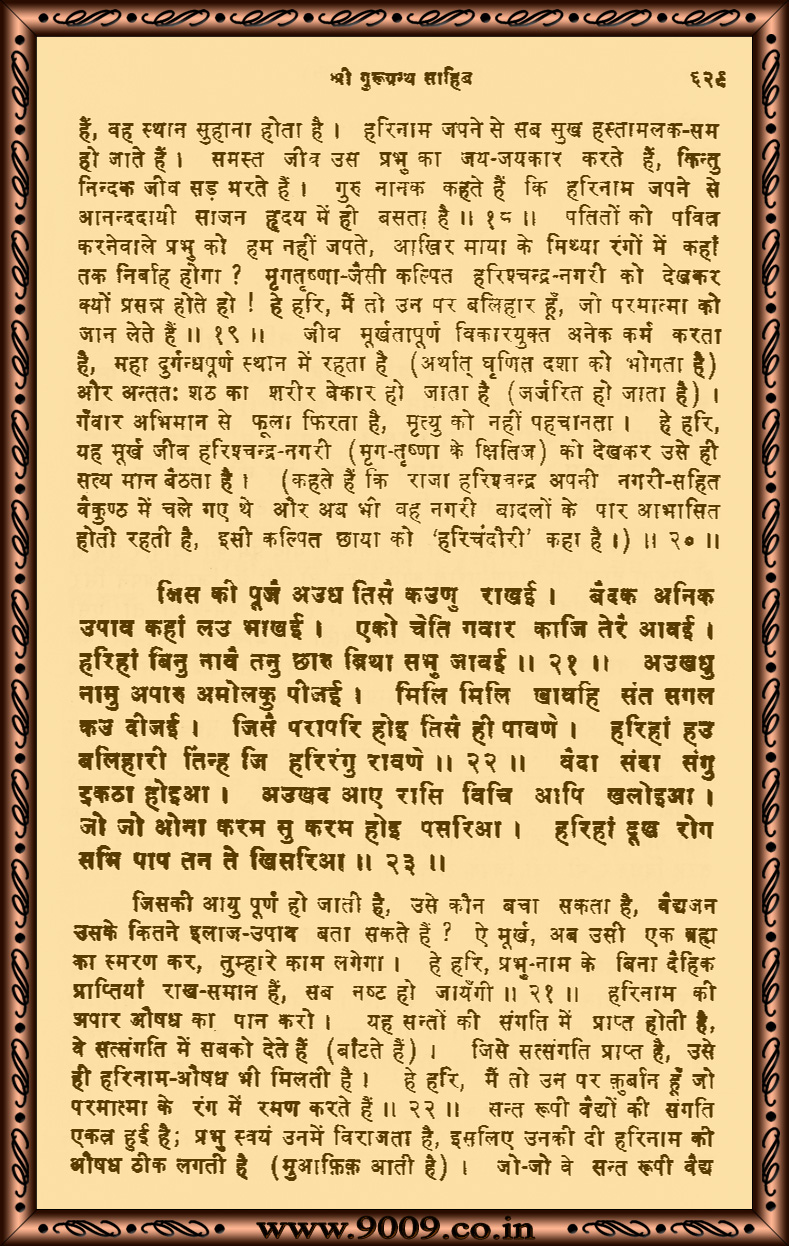 श्री गुरूग्रन्थ साहिब ६२९
हैं, वह स्थान सुहाना होता है । हरिनाम जपने से सब सुख हस्तामलक-सम
हो जाते हैं । समस्त जीव उस प्रभु का जय-जयकार करते हैं, किन्तु
निन्दक जीव सड़ मरते हैं । गुरु नानक कहते हैं कि हरिनाम जपने से
आनन्ददायी साजन हृदय में ही बसता है ॥ १८ ॥ पतितों को पवित्र
करनेवाले प्रभु को हम नहीं जपते, आखिर माया के मिथ्या रंगों में कहाँ
तक निर्वाह होगा ? मृगतृष्णा-जैसी कल्पित हरिश्चन्द्र-नगरी को देखकर
क्यों प्रसन्न होते हो ! हे हरि, मैं तो उन पर बलिहार हूँ, जो परमात्मा को
जान लेते हैं ॥ १९ ॥ जीव मूर्खतापूर्ण विकारयुक्त अनेक कर्म करता
है, महा दुर्गन्धपूर्ण स्थान में रहता है (अर्थात् घृणित दशा को भोगता है)
और अन्तत: शठ का शरीर बेकार हो जाता है (जर्जरित हो जाता है) ।
गँवार अभिमान से फूला फिरता है, मृत्यु को नहीं पहचानता । हे हरि,
यह मूर्ख जीव हरिश्चन्द्र-नगरी (मृग-तृष्णा के क्षितिज) को देखकर उसे ही
सत्य मान बैठता है । (कहते हैं कि राजा हरिश्चन्द्र अपनी नगरी-सहित
वैकुण्ठ में चले गए थे और अब भी वह नगरी बादलों के पार आभासित
होती रहती है, इसी कल्पित छाया को ‘हरिचंदौरी’ कहा है ।) ॥ २० ॥
जिस की पूजै अउध तिसै कउणु राखई । बैदक अनिक
उपाव कहां लउ भाखई । एको चेति गवार काजि तेरै आवई ।
हरिहां बिनु नावै तनु छारु ब्रिथा सभु जावई ॥ २१ ॥ अउखधु
नामु अपारु अमोलकु पीजई । मिलि मिलि खावहि संत सगल
कउ दीजई । जिसै परापरि होइ तिसै ही पावणे । हरिहां हउ
बलिहारी तिंन्ह जि हरिरंगु रावणे ॥ २२ ॥ वैदा संदा संगु
इकठा होइआ । अउखद आए रासि विचि आपि खलोइआ ।
जो जो ओना करम सु करम होइ पसरिआ । हरिहां दूख रोग
सभि पाप तन ते खिसरिआ ॥ २३ ॥
जिसकी आयु पूर्ण हो जाती है, उसे कौन बचा सकता है, वैद्यजन
उसके कितने इलाज-उपाव बता सकते हैं ? ऐ मूर्ख, अब उसी एक ब्रह्म
का स्मरण कर, तुम्हारे काम लगेगा । हे हरि, प्रभु-नाम के बिना दैहिक
प्राप्तियाँ राख-समान हैं, सब नष्ट हो जायँगी ॥ २१ ॥ हरिनाम की
अपार औषध का पान करो । यह सन्तों की संगति में प्राप्त होती है,
वे सत्संगति में सबको देते हैं (बाँटते हैं) । जिसे सत्संगति प्राप्त है, उसे
ही हरिनाम-औषध भी मिलती है । हे हरि, मैं तो उन पर क़ुर्बान हूँ जो
परमात्मा के रंग में रमण करते हैं ॥ २२ ॥ सन्त रूपी वैद्यों की संगति
एकत्र हुई है; प्रभु स्वयं उनमें विराजता है, इसलिए उनकी दी हरिनाम की
औषध ठीक लगती है (मुआफ़िक़ आती है) । जो-जो वे सन्त रूपी वैद्य
www.9009.co.in